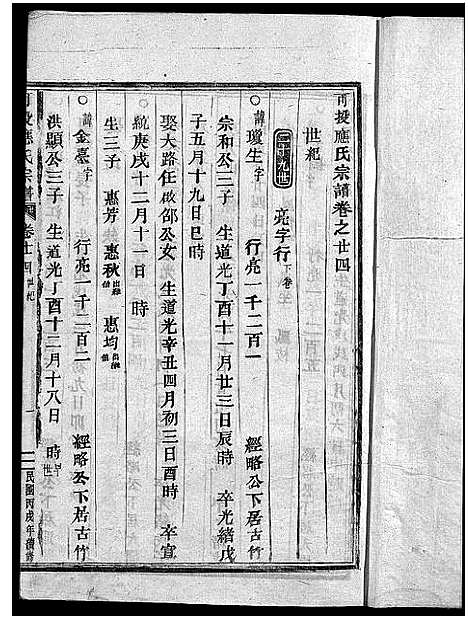 可投應氏宗譜卷之廿四
世紀
三十九世 亮字行 下卷
○諱瓊生 字 行亮一千二百一 經略公下居古竹
宗和公三子 生道光丁酉十一月廿三日辰時 卒光緒戊
子五月十九日巳時
娶大路任啟邵公女 生道光辛丑四月初三日酉時 卒宣
統庚戌十二月十一日 時
生三子 惠芳 惠秋 出繼 惠均 出繼
○諱金臺 字 行亮一千二百二 經略公下居古竹
洪顯公三子 生道光丁酉十二月十八日 時 早世
應氏宗譜 卷廿四 世紀 一 民國丙戌年續修